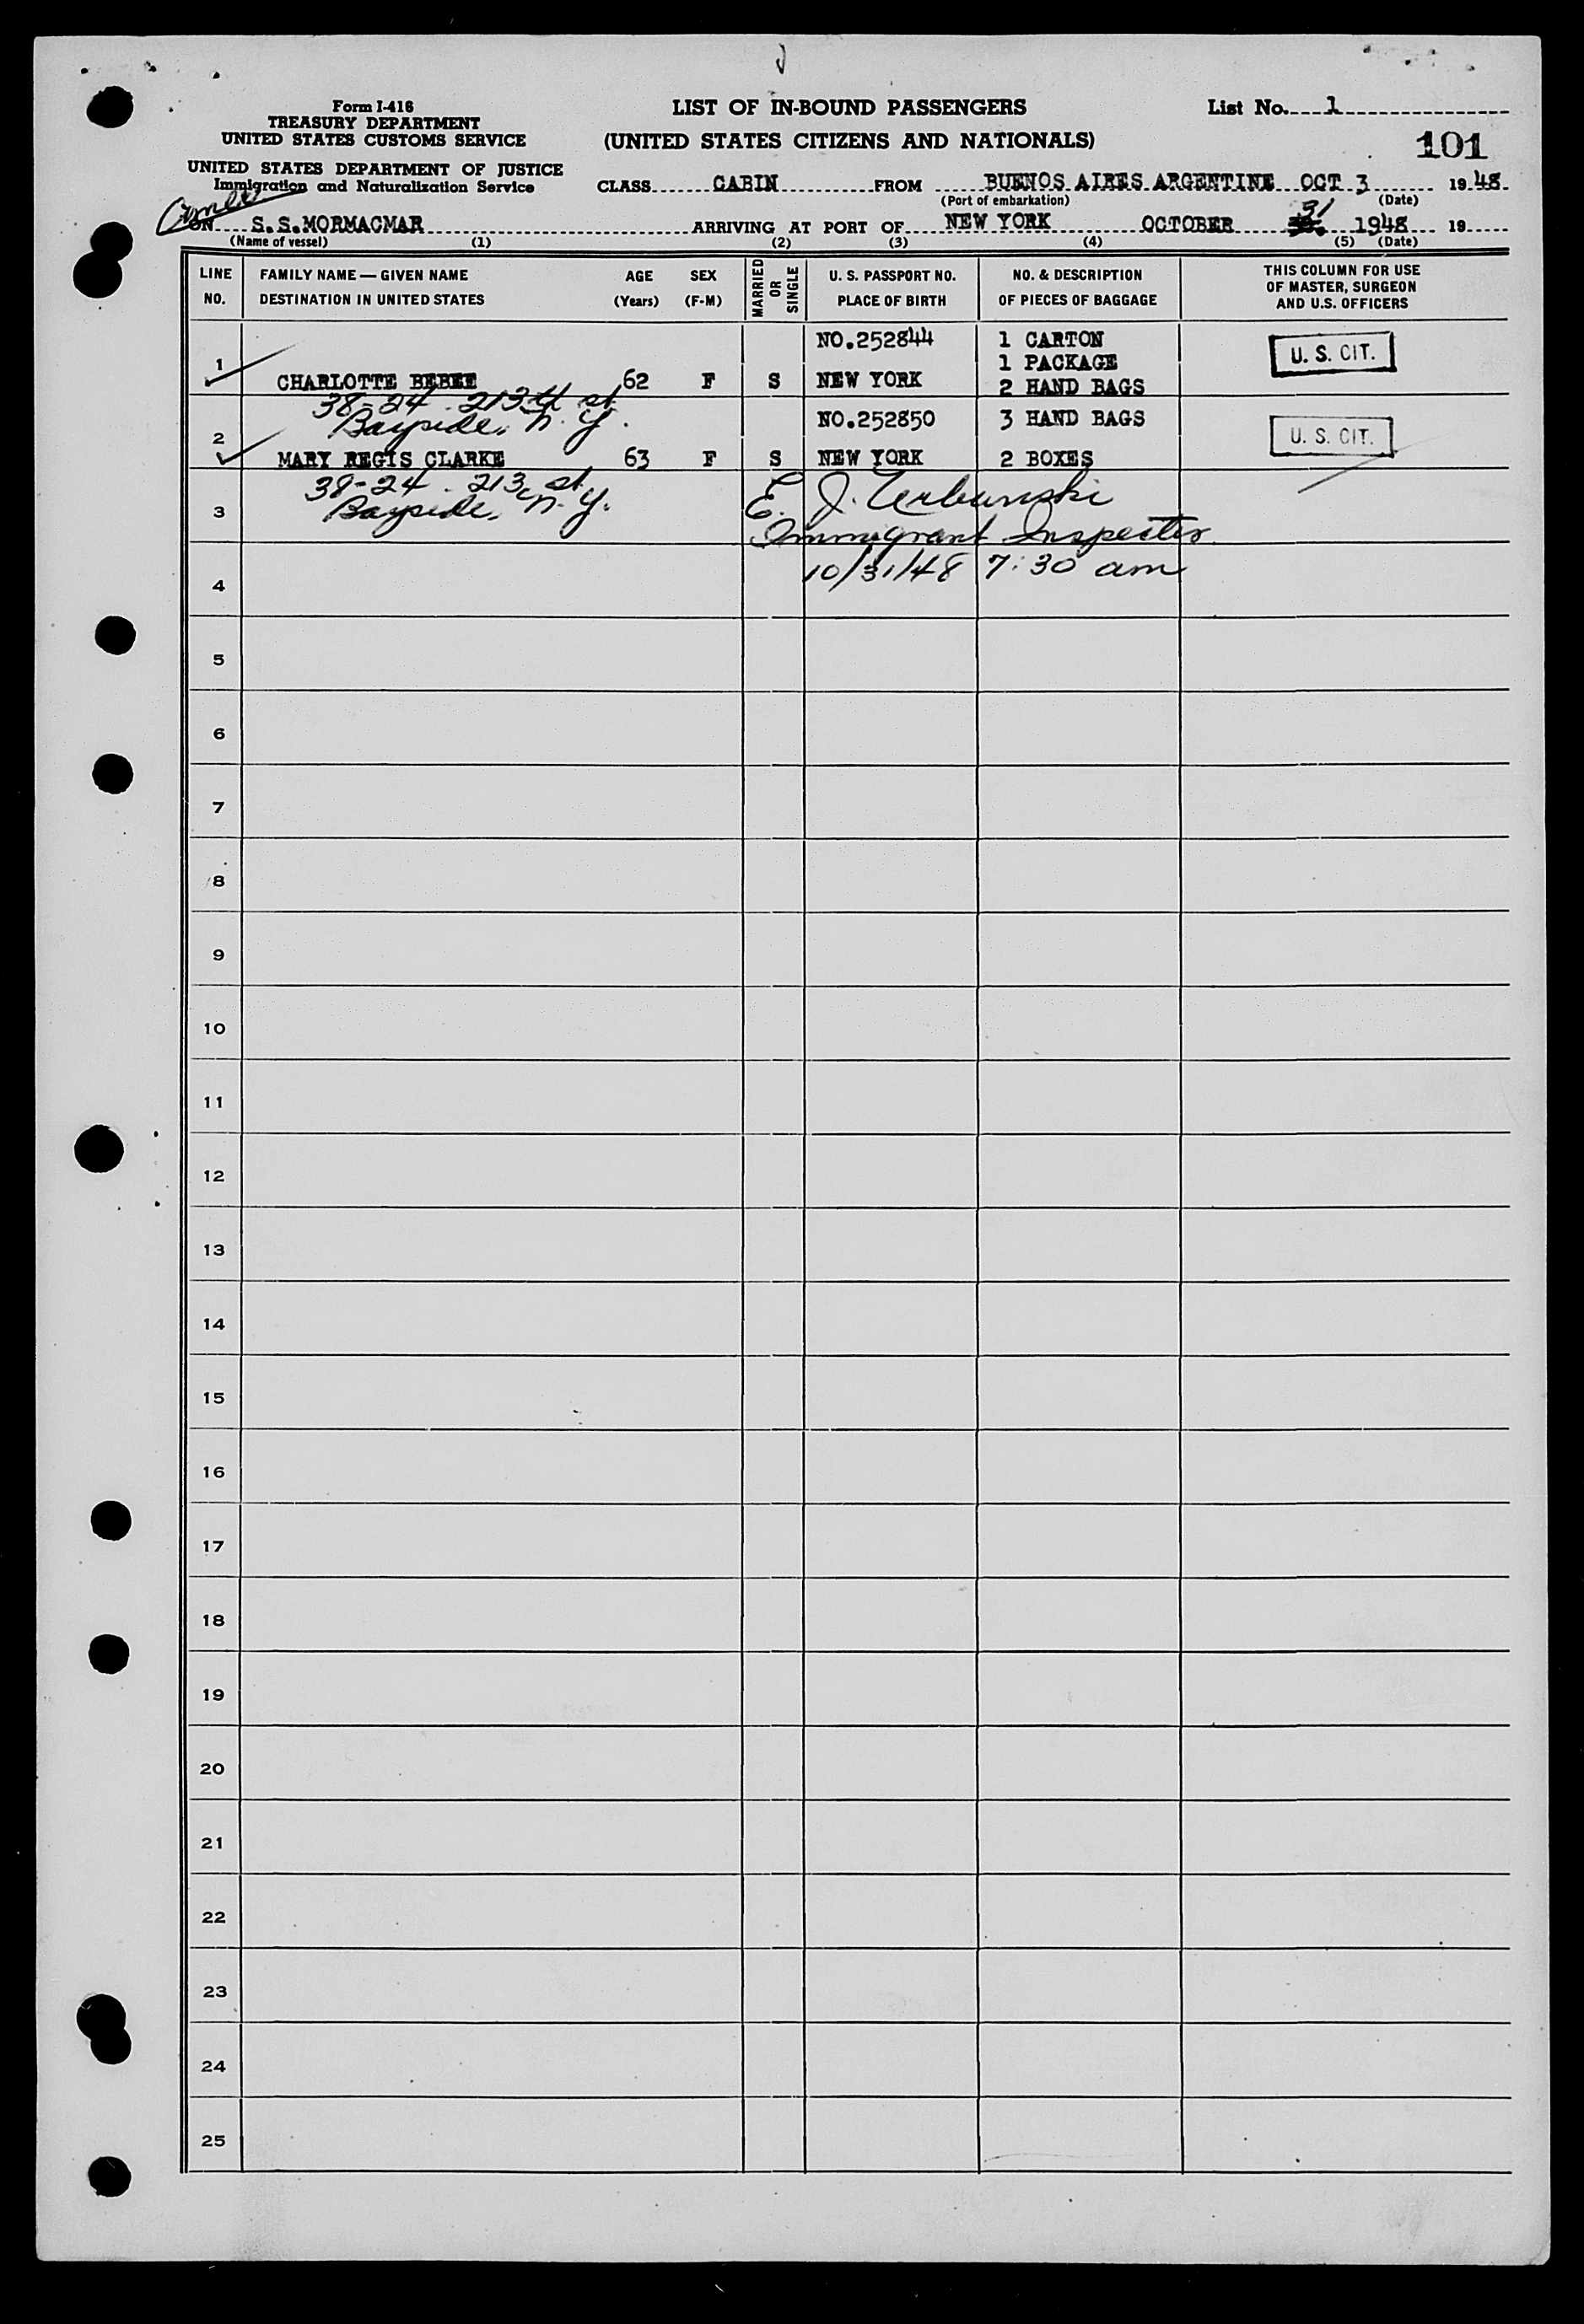 Form I-416
TREASURY DEPARTMENT
UNITED STATES CUSTOMS SERVICE
UNITED STATES DEPARTMENT OF JUSTICE
Immigration and Naturalization Service
LIST OF IN-BOUND PASSENGERS
(UNITED STATES CITIZENS AND NATIONALS)
List No. 1
101
CLASS CABIN FROM BUENOS AIRES ARGENTINE OCT 3 1948
(Port of embarkation) (Date)
ON S.S.MORMACMAR ARRIVING AT PORT OF NEW YORK OCTOBER 31 1948 19
(Name of vessel) (1) (2) (3) (4) (5) (Date)
LINE NO.
FAMILY NAME — GIVEN NAME
DESTINATION IN UNITED STATES
AGE (Years)
SEX (F-M)
MARRIED OR SINGLE
U. S. PASSPORT NO.
PLACE OF BIRTH
NO. & DESCRIPTION
OF PIECES OF BAGGAGE
THIS COLUMN FOR USE
OF MASTER, SURGEON
AND U.S. OFFICERS
NO.252844 1 CARTON
1 1 PACKAGE U. S. CIT.
CHARLOTTE BEBEE 62 F S NEW YORK 2 HAND BAGS
38-24 213th st.
Bayside, N. Y.
NO.252850 3 HAND BAGS
2 U. S. CIT.
MARY REGIS CLARKE 63 F S NEW YORK 2 BOXES
38-24 213 st.
Bayside, N. Y.
E. J. Urbanski
3
Immigrant Inspector
10/31/48 7:30 am
4
5
6
7
8
9
10
11
12
13
14
15
16
17
18
19
20
21
22
23
24
25